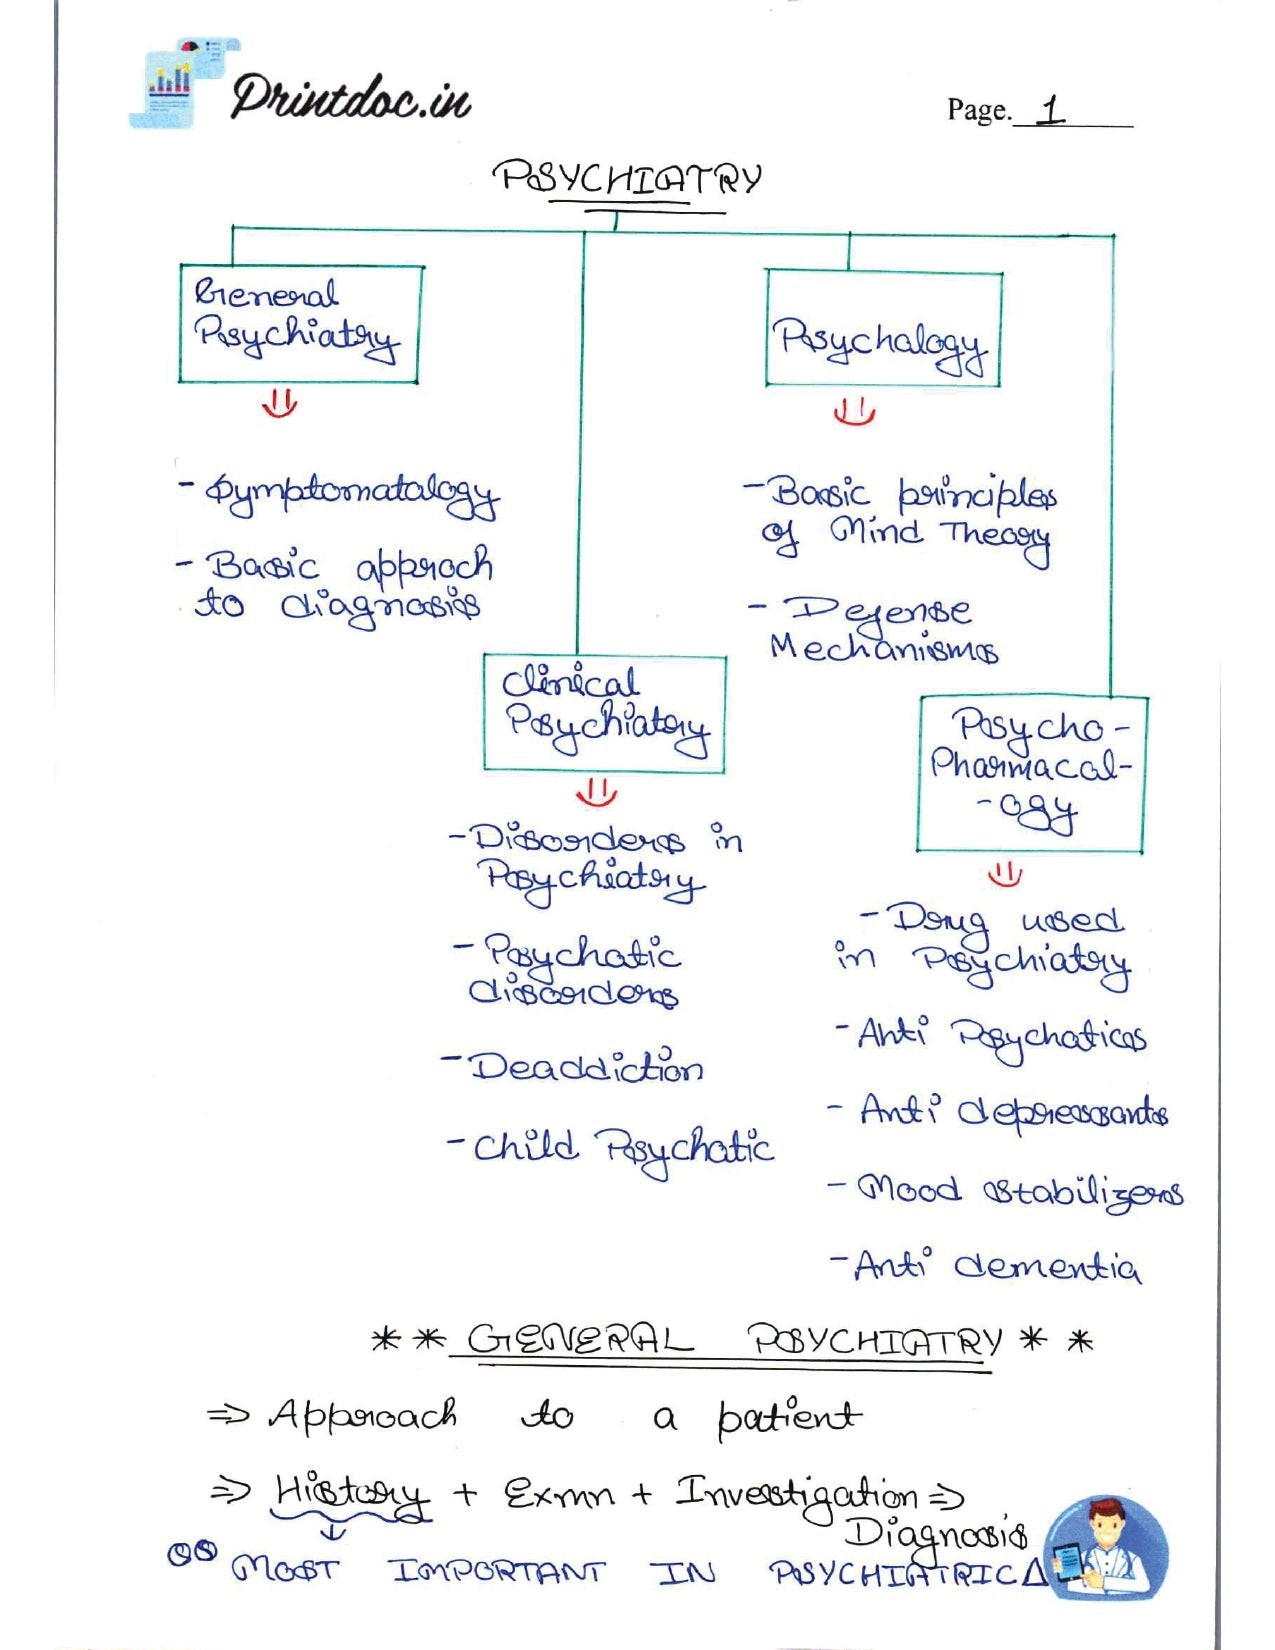 Printdoc.in
Page. 1
PSYCHIATRY
General
Psychiatry
- Symptomatalogy
- Basic approch
to diagnosis
Psychalogy
- Basic principles
of Mind Theory
- Defense
Mechanisms
Clinical
Psychiatry
- Disorders in
Psychiatry
- Psychotic
disorders
- Deaddiction
- Child Psychatic
Psycho-
Pharmacal-
-ogy
- Drug used
in Psychiatry
- Anti Psychatics
- Anti depressants
- Mood stabilizers
- Anti dementia
** GENERAL PSYCHIATRY **
⇒ Approach to a patient
⇒ History + Exmn + Investigation ⇒
Diagnosis
MOST IMPORTANT IN PSYCHIATRICA